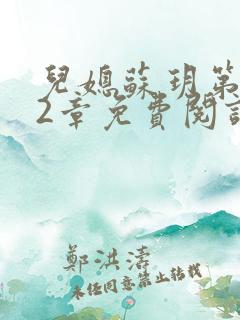 兒媳蘇玥第
2章免費閱讀
鄭洪濤
未經同意禁止轉載